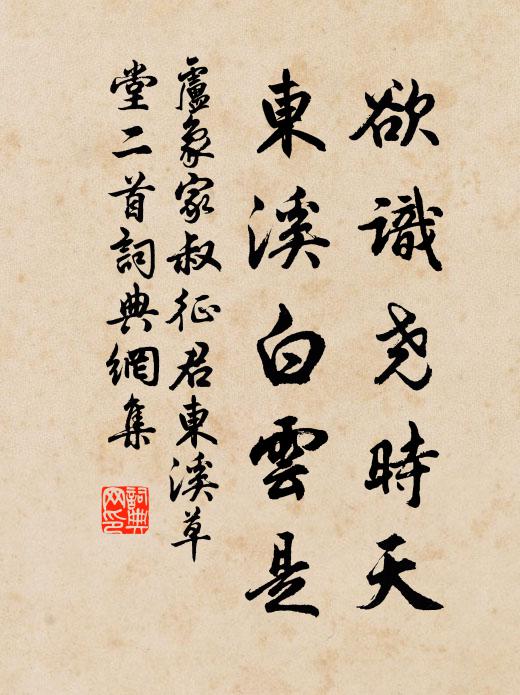 欲識尧時天
東溪白雲是
盧象家叔征君東溪草
堂二首詞典網集
詞典
网印